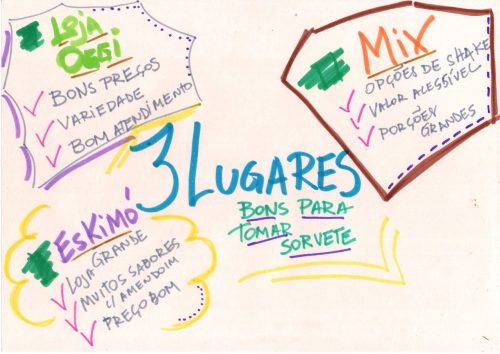 Loja
Oggi
BONS PREÇOS
VARIEDADE
BOM ATENDIMENTO
MIX
OPÇÕES DE SHAKE
VALOR ALESSÍVEL
PORÇÕES
GRANDES
3 LUGARES
BONS PARA
TOMAR
SORVETE
ESKIMÓ
LOJA GRANDE
MUITOS SABORES
C/ AMENDOIM
PREÇO BOM